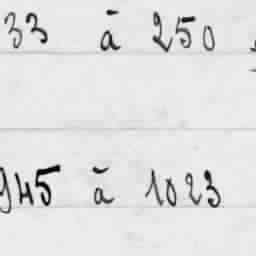 33 à 250
945 à 1023